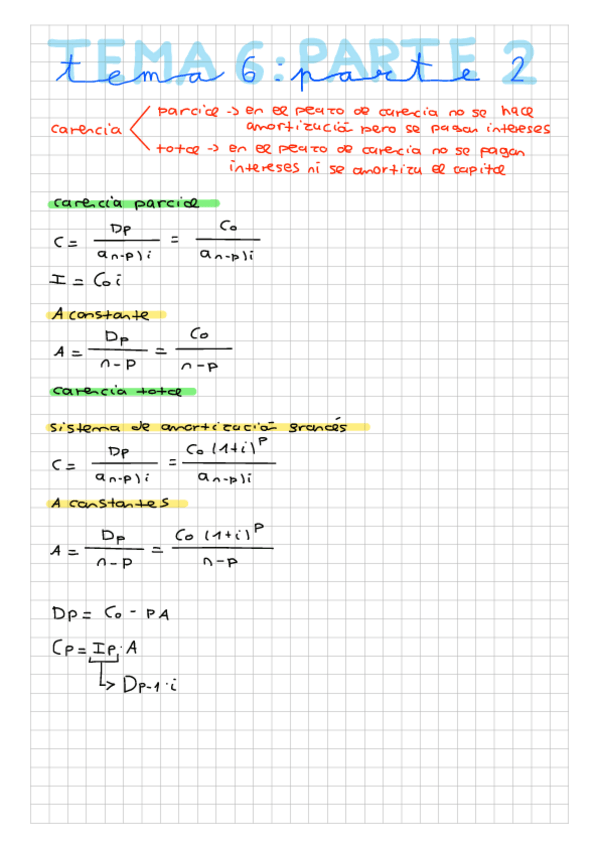 TEMA 6: PARTE 2
tema 6: parte 2
carencia
parcial -> en el plazo de carencia no se hace
amortización pero se pagan intereses
total -> en el plazo de carencia no se pagan
intereses ni se amortiza el capital
carencia parcial
C = Dp / a n-p) i = C0 / a n-p) i
I = C0 i
A constante
A = Dp / n-p = C0 / n-p
carencia total
sistema de amortización francés
C = Dp / a n-p) i = C0 (1+i)^p / a n-p) i
A constantes
A = Dp / n-p = C0 (1+i)^p / n-p
Dp = C0 - pA
Cp = Ip · A
-> Dp-1 · i